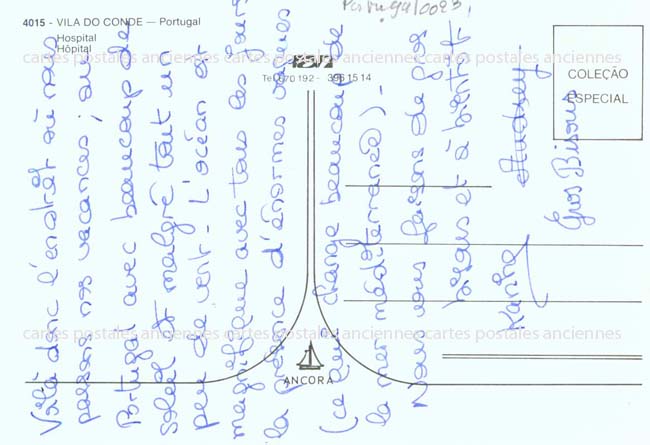 Portugal 0023,
4015 - VILA DO CONDE — Portugal
Hospital
Hôpital
cartes postales anciennes cartes postales anciennes cartes postales anciennes
COLEÇÃO
ESPECIAL
cartes postales anciennes cartes postales anciennes cartes postales anciennes
ANCORA
Voilà donc l'endroit où nous
passons nos vacances ; au
Portugal avec beaucoup de
soleil et malgré tout un
peu de vent - L'océan est
magnifique avec tous les jours
la présence d'énormes vagues
(ce qui change beaucoup de
la mer méditerranée) -
Nous vous faisons de gros
bisous et à bientôt
Karine
Audrey
Gros Bisous